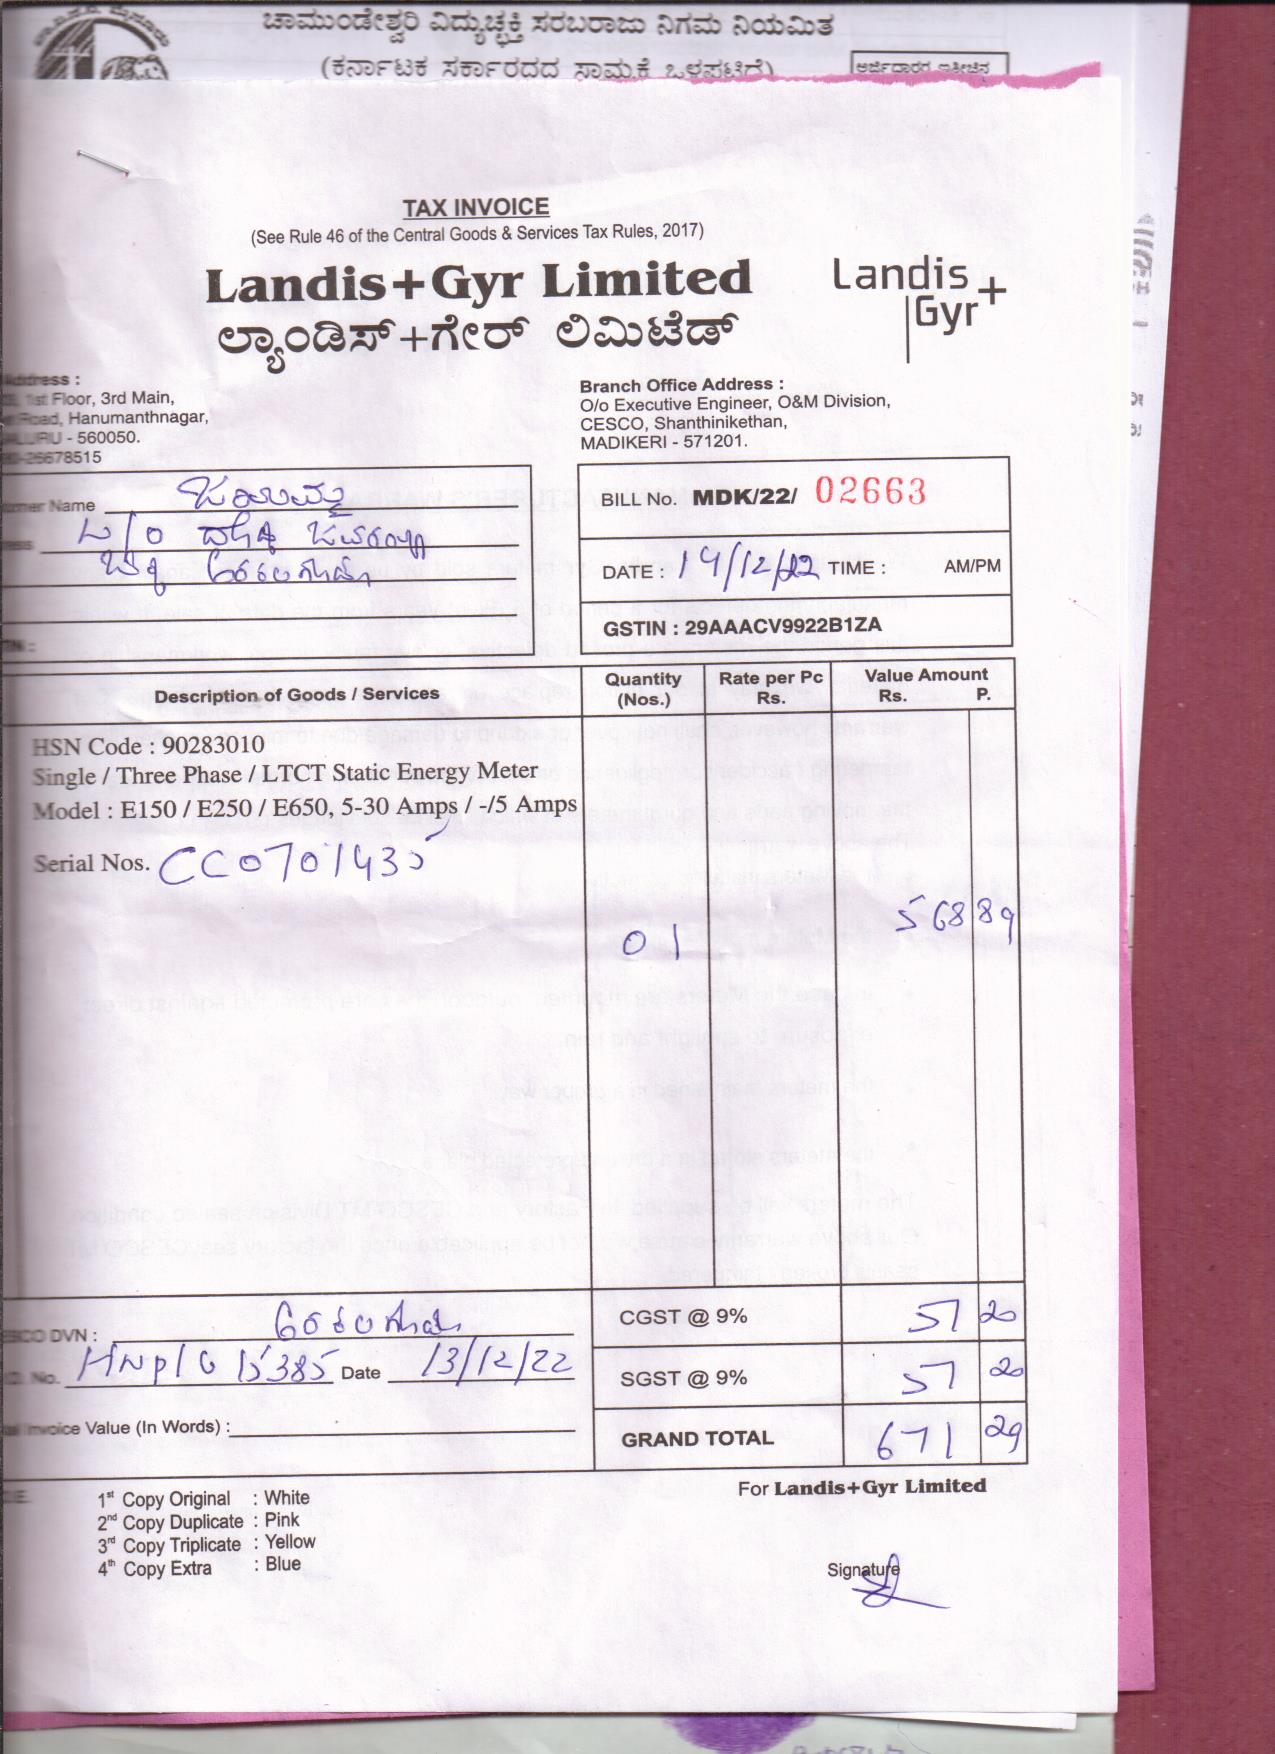 ಚಾಮುಂಡೇಶ್ವರಿ ವಿದ್ಯುಚ್ಛಕ್ತಿ ಸರಬರಾಜು ನಿಗಮ ನಿಯಮಿತ
(ಕರ್ನಾಟಕ ಸರ್ಕಾರದ ಸಾಮ್ಯಕ್ಕೆ ಒಳಪಟ್ಟಿದೆ)
ಅರ್ಜಿದಾರರ ಇತ್ತೀಚಿನ
TAX INVOICE
(See Rule 46 of the Central Goods & Services Tax Rules, 2017)
Landis+Gyr Limited
ಲ್ಯಾಂಡಿಸ್+ಗೇರ್ ಲಿಮಿಟೆಡ್
Landis+
Gyr
Address :
1st Floor, 3rd Main,
Road, Hanumanthnagar,
- 560050.
26678515
Branch Office Address :
O/o Executive Engineer, O&M Division,
CESCO, Shanthinikethan,
MADIKERI - 571201.
Name
BILL No. MDK/22/ 02663
DATE : 14/12/22 TIME : AM/PM
GSTIN : 29AAACV9922B1ZA
Description of Goods / Services Quantity (Nos.) Rate per Pc Rs. Value Amount Rs. P.
HSN Code : 90283010
Single / Three Phase / LTCT Static Energy Meter
Model : E150 / E250 / E650, 5-30 Amps / -/5 Amps
Serial Nos. CC0701435
01 568 89
DVN :
CGST @ 9% 57 20
No. HNP/G 15385 Date 13/12/22
SGST @ 9% 57 20
Invoice Value (In Words) :
GRAND TOTAL 671 29
For Landis+Gyr Limited
1st Copy Original : White
2nd Copy Duplicate : Pink
3rd Copy Triplicate : Yellow
4th Copy Extra : Blue
Signature